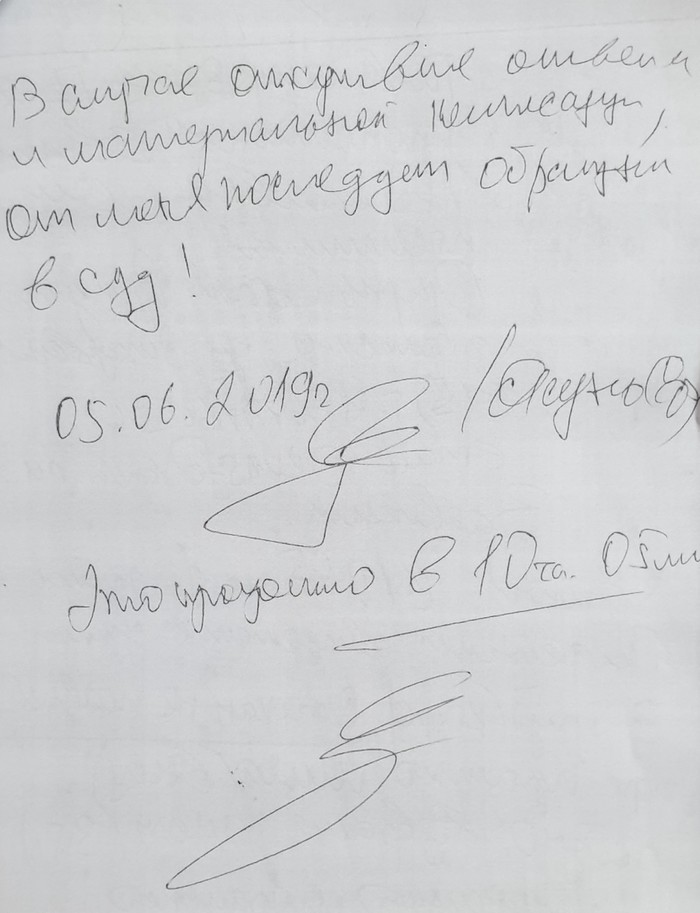 В случае отсутствие ответа
и материальной компенсации,
от меня последует обращении
в суд!
05.06.2019г
в 10ча. 05ми